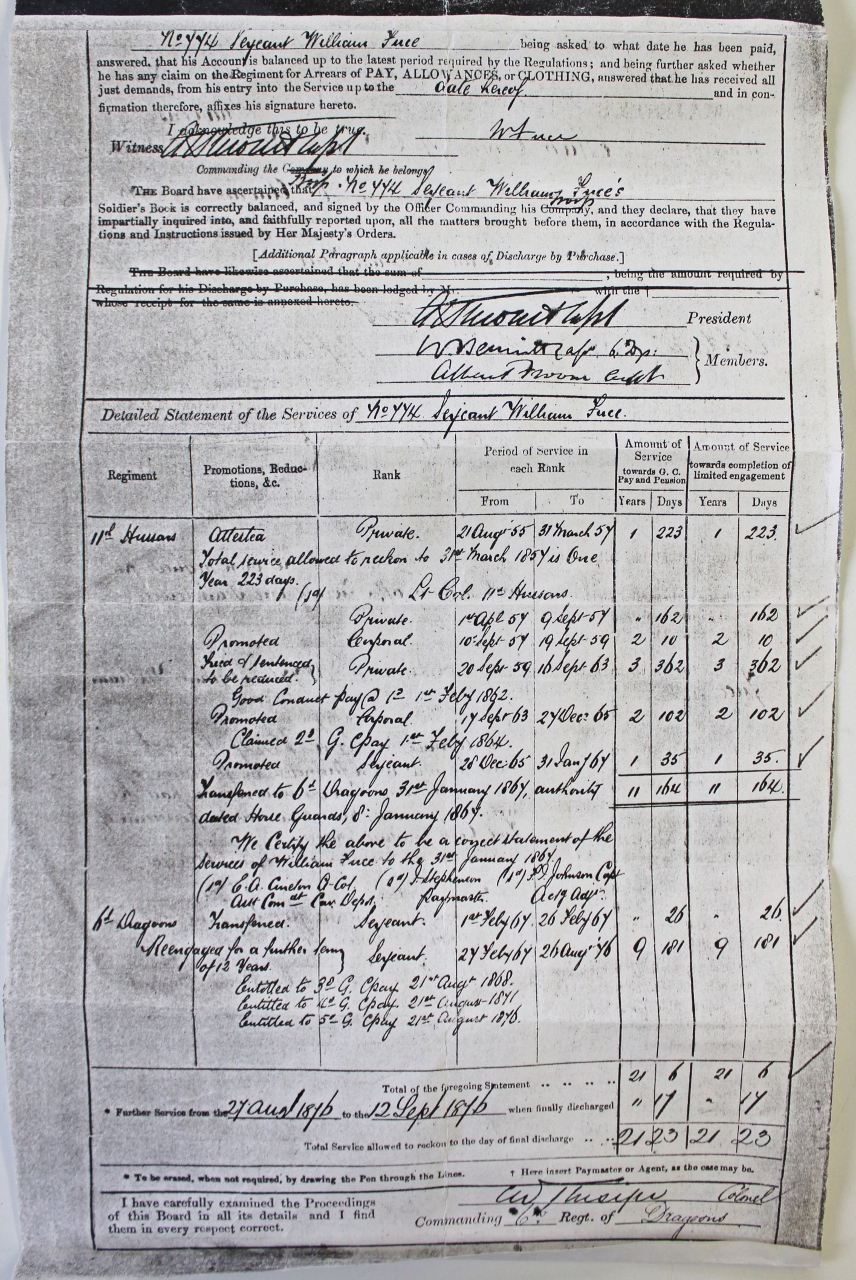 No 774 Serjeant William Luce being asked to what date he has been paid,
answered, that his Account is balanced up to the latest period required by the Regulations; and being further asked whether
he has any claim on the Regiment for Arrears of PAY, ALLOWANCES, or CLOTHING, answered that he has received all
just demands, from his entry into the Service up to the date hereof and in con-
firmation therefore, affixes his signature hereto.
I acknowledge this to be true.
W Luce
Witness Capt
Commanding the Company to which he belongs
Troop
THE Board have ascertained that No 774 Serjeant William Luce's
Soldier's Book is correctly balanced, and signed by the Officer Commanding his Company, and they declare, that they have
Troop
impartially inquired into, and faithfully reported upon, all the matters brought before them, in accordance with the Regula-
tions and Instructions issued by Her Majesty's Orders.
[Additional Paragraph applicable in cases of Discharge by Purchase.]
THE Board have likewise ascertained that the sum of , being the amount required by
Regulation for his Discharge by Purchase, has been lodged by M. with the †
whose receipt for the same is annexed hereto.
Capt President
Capt 6 Dgs.
Members.
Albert Capt
Detailed Statement of the Services of No 774 Serjeant William Luce.
Regiment Promotions, Reductions, &c. Rank Period of Service in each Rank Amount of Service towards G. C. Pay and Pension Amount of Service towards completion of limited engagement
From To Years Days Years Days
11th Hussars Attested Private. 21 Augt 55 31 March 57 1 223 1 223
Total service allowed to reckon to 31st March 1857 is One
Year 223 days.
Lt Col. 11th Hussars.
Private 1st Apl 57 9 Sept 57 " 162 " 162
Promoted Corporal 10 Sept 57 19 Sept 59 2 10 2 10
Tried & sentenced to be reduced. } Private 20 Sept 59 16 Sept 63 3 362 3 362
Good Conduct pay @ 1d 1st Feby 1862.
Promoted Corporal 17 Sept 63 27 Dec 65 2 102 2 102
Claimed 2d G. C pay 1st Feby 1864.
Promoted Serjeant. 28 Dec 65 31 Jany 67 1 35 1 35
Transferred to 6th Dragoons 31st January 1867, authority 11 164 11 164
dated Horse Guards, 8th January 1867.
We Certify the above to be a correct statement of the
services of William Luce to the 31st January 1867
(sd) E. A. Col. (sd) J. Stephenson (sd) Johnson Capt
Asst Comdt Cav. Depot, Paymaster. Actg Adjt.
6th Dragoons Transferred. Serjeant. 1st Feby 67 26 Feby 67 " 26 " 26
Reengaged for a further term of 12 Years. } Serjeant. 27 Feby 67 26 Augt 76 9 181 9 181
Entitled to 3d G. C pay 21st Augt 1868.
Entitled to 4d G. C pay 21st August 1871
Entitled to 5d G. C pay 21st August 1876.
Total of the foregoing Statement 21 6 21 6
* Further Service from the 27 Augt 1876 to the 12 Sept 1876 when finally discharged " 17 " 17
Total Service allowed to reckon to the day of final discharge 21 23 21 23
* To be erased, when not required, by drawing the Pen through the Lines. † Here insert Paymaster or Agent, as the case may be.
I have carefully examined the Proceedings
of this Board in all its details and I find
them in every respect correct.
Colonel
Commanding 6th Regt. of Dragoons